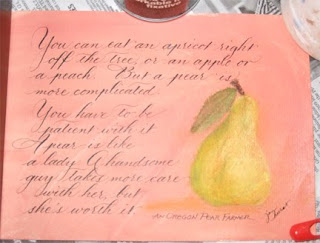 You can eat an apricot right
off the tree, or an apple or
a peach. But a pear is
more complicated.
You have to be
patient with it.
A pear is like
a lady. A handsome
guy takes more care
with her, but
she's worth it."
AN OREGON PEAR FARMER